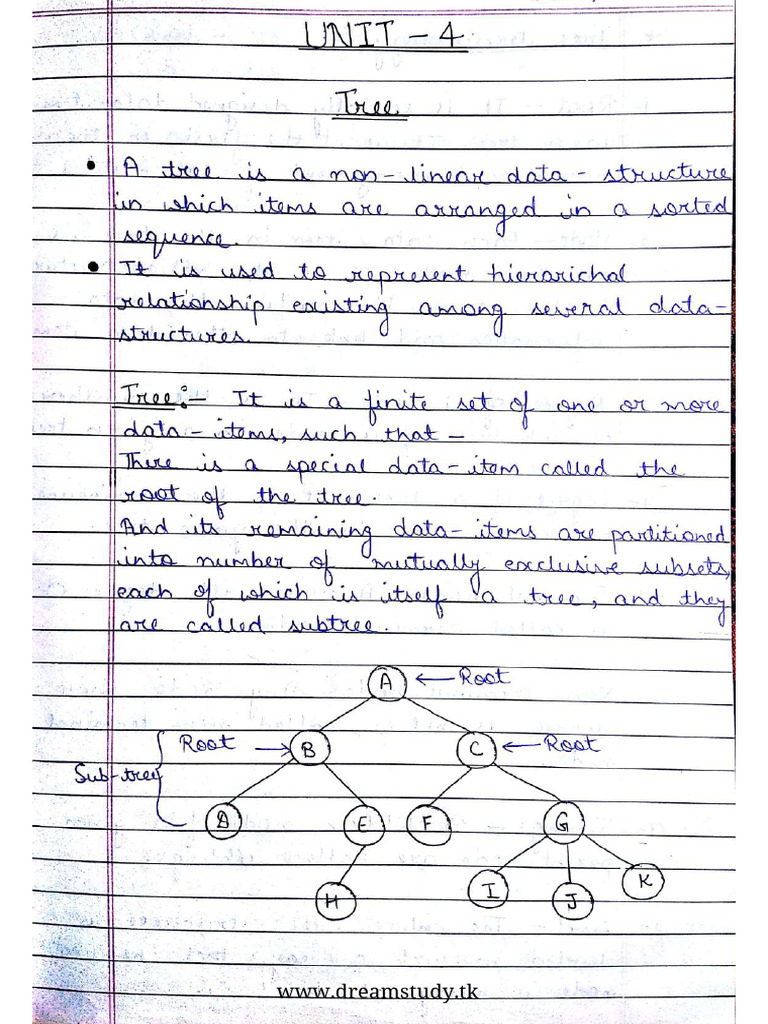 UNIT - 4
Tree
• A tree is a non-linear data-structure
in which items are arranged in a sorted
sequence.
• It is used to represent hierarichal
relationship existing among several data-
structures.
Tree:- It is a finite set of one or more
data-items, such that -
There is a special data-item called the
root of the tree.
And its remaining data-items are partitioned
into number of mutually exclusive subsets,
each of which is itself a tree, and they
are called subtree.
A ← Root
Root → B C ← Root
Sub-tree
D E F G
H I J K
www.dreamstudy.tk